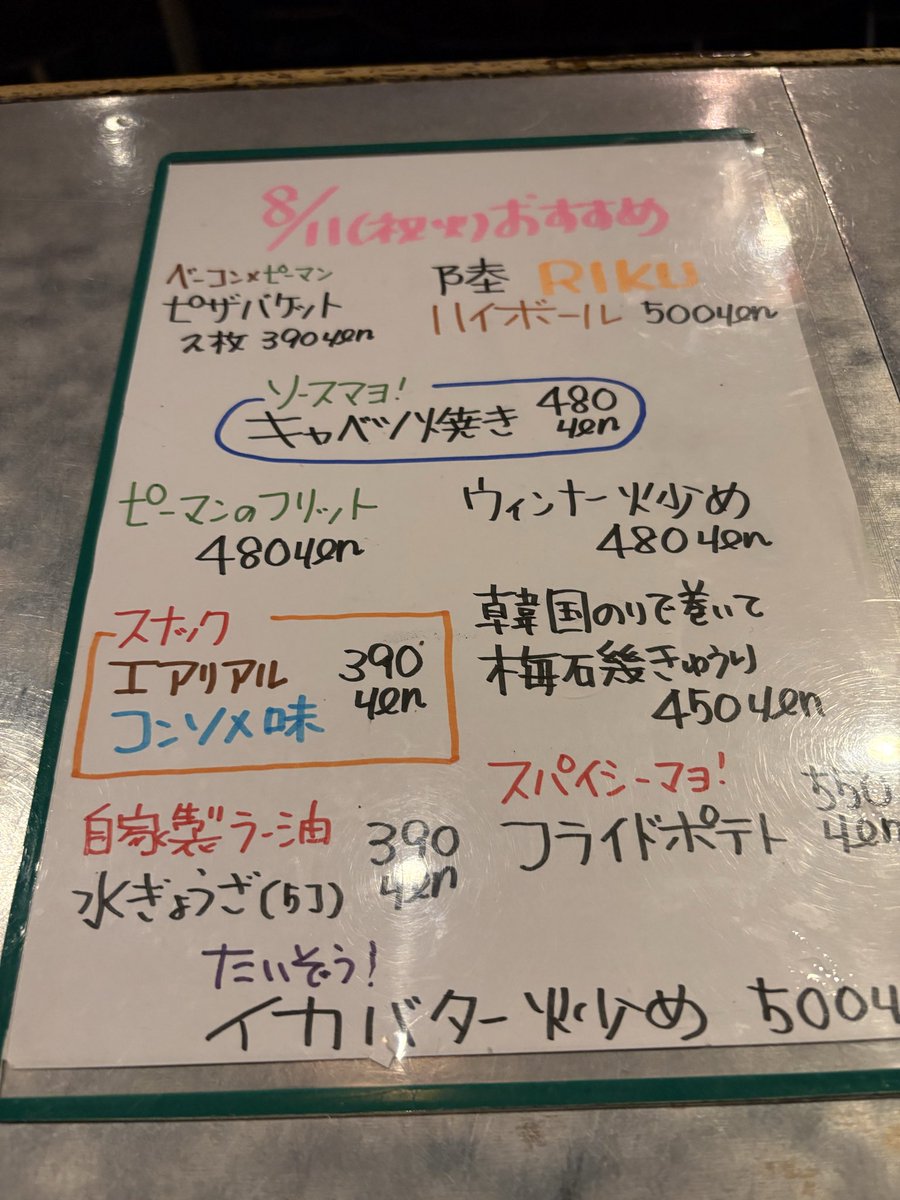 8/11(祝火)おすすめ
ベーコン×ピーマン
ピザバケット
2枚 390yen
陸 RIKU
ハイボール 500yen
ソースマヨ!
キャベツ焼き 480yen
ピーマンのフリット
480yen
ウィンナー炒め
480yen
スナック
エアリアル 390yen
コンソメ味
韓国のりで巻いて
梅石幾きゅうり
450yen
自家製ラー油 390yen
水ぎょうざ(5コ)
スパイシーマヨ! 550yen
フライドポテト
たいぞう!
イカバター炒め 500y